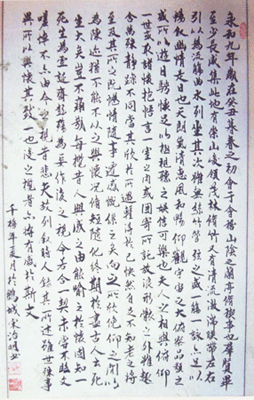 永和九年歲在癸丑暮春之初會于會稽山陰之蘭亭脩稧事也羣賢畢
至少長咸集此地有崇山峻領茂林脩竹又有清流激湍暎帶左右
引以為流觴曲水列坐其次雖無絲竹管弦之盛一觴一詠亦足以
暢敘幽情是日也天朗氣清惠風和暢仰觀宇宙之大俯察品類之
盛所以遊目騁懷足以極視聽之娛信可樂也夫人之相與俯仰
一世或取諸懷抱悟言一室之內或因寄所託放浪形骸之外雖趣
舍萬殊靜躁不同當其欣於所遇蹔得於己快然自足不知老之將
至及其所之既惓情隨事遷感慨係之矣向之所欣俛仰之閒以
為陳迹猶不能不以之興懷況脩短隨化終期於盡古人云死
生亦大矣豈不痛哉每攬昔人興感之由能喻之於懷固知一
死生為虛誕齊彭殤為妄作後之視今若合一契未嘗不臨文
嗟悼不由今之視昔悲夫故列敘時人錄其所述雖世殊事
異所以興懷其致一也後之攬者亦將有感於斯文
千禧年夏月於鵬城宋